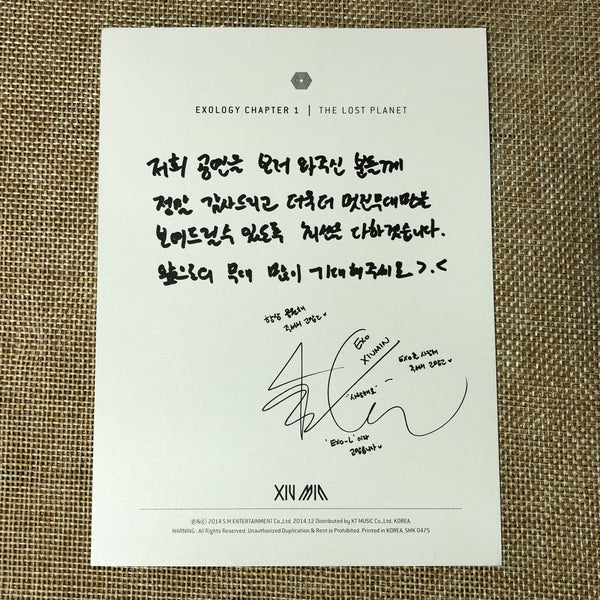 EXOLOGY CHAPTER 1 | THE LOST PLANET
저희 공연을 보러 와주신 분들께
정말 감사드리고 더욱더 멋진무대만을
보여드릴수 있도록 최선을 다하겠습니다.
앞으로의 무대 많이 기대해주세요 >.<
항상 응원해
주셔서 고맙고♥
EXO
XIUMIN
EXO를 사랑해
주셔서 고맙고♥
"사랑해요"
'EXO-L'이라
고맙습니다♥
XIU MIN
℗&© 2014 S.M.ENTERTAINMENT Co.,Ltd. 2014.12 Distributed by KT MUSIC Co.,Ltd. KOREA.
WARNING : All Rights Reserved. Unauthorized Duplication & Rent is Prohibited. Printed in KOREA. SMK 0475